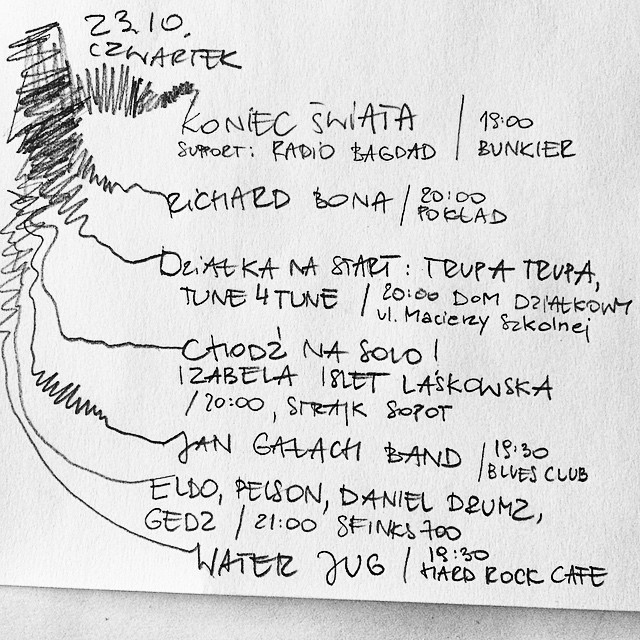 23.10.
CZWARTEK
KONIEC ŚWIATA | 19:00
SUPPORT: RADIO BAGDAD | BUNKIER
RICHARD BONA / 20:00
POKŁAD
DZIAŁKA NA START: TRUPA TRUPA,
TUNE 4 TUNE / 20:00 DOM DZIAŁKOWY
ul. Macierzy Szkolnej
CHODŹ NA SOLO!
IZABELA ISLET LAŚKOWSKA
/ 20:00, STRAJK SOPOT
JAN GAŁACH BAND / 19:30
BLUES CLUB
ELDO, PELSON, DANIEL DRUMZ,
GEDZ / 21:00 SFINKS 700
WATER JUG / 19:30
HARD ROCK CAFE